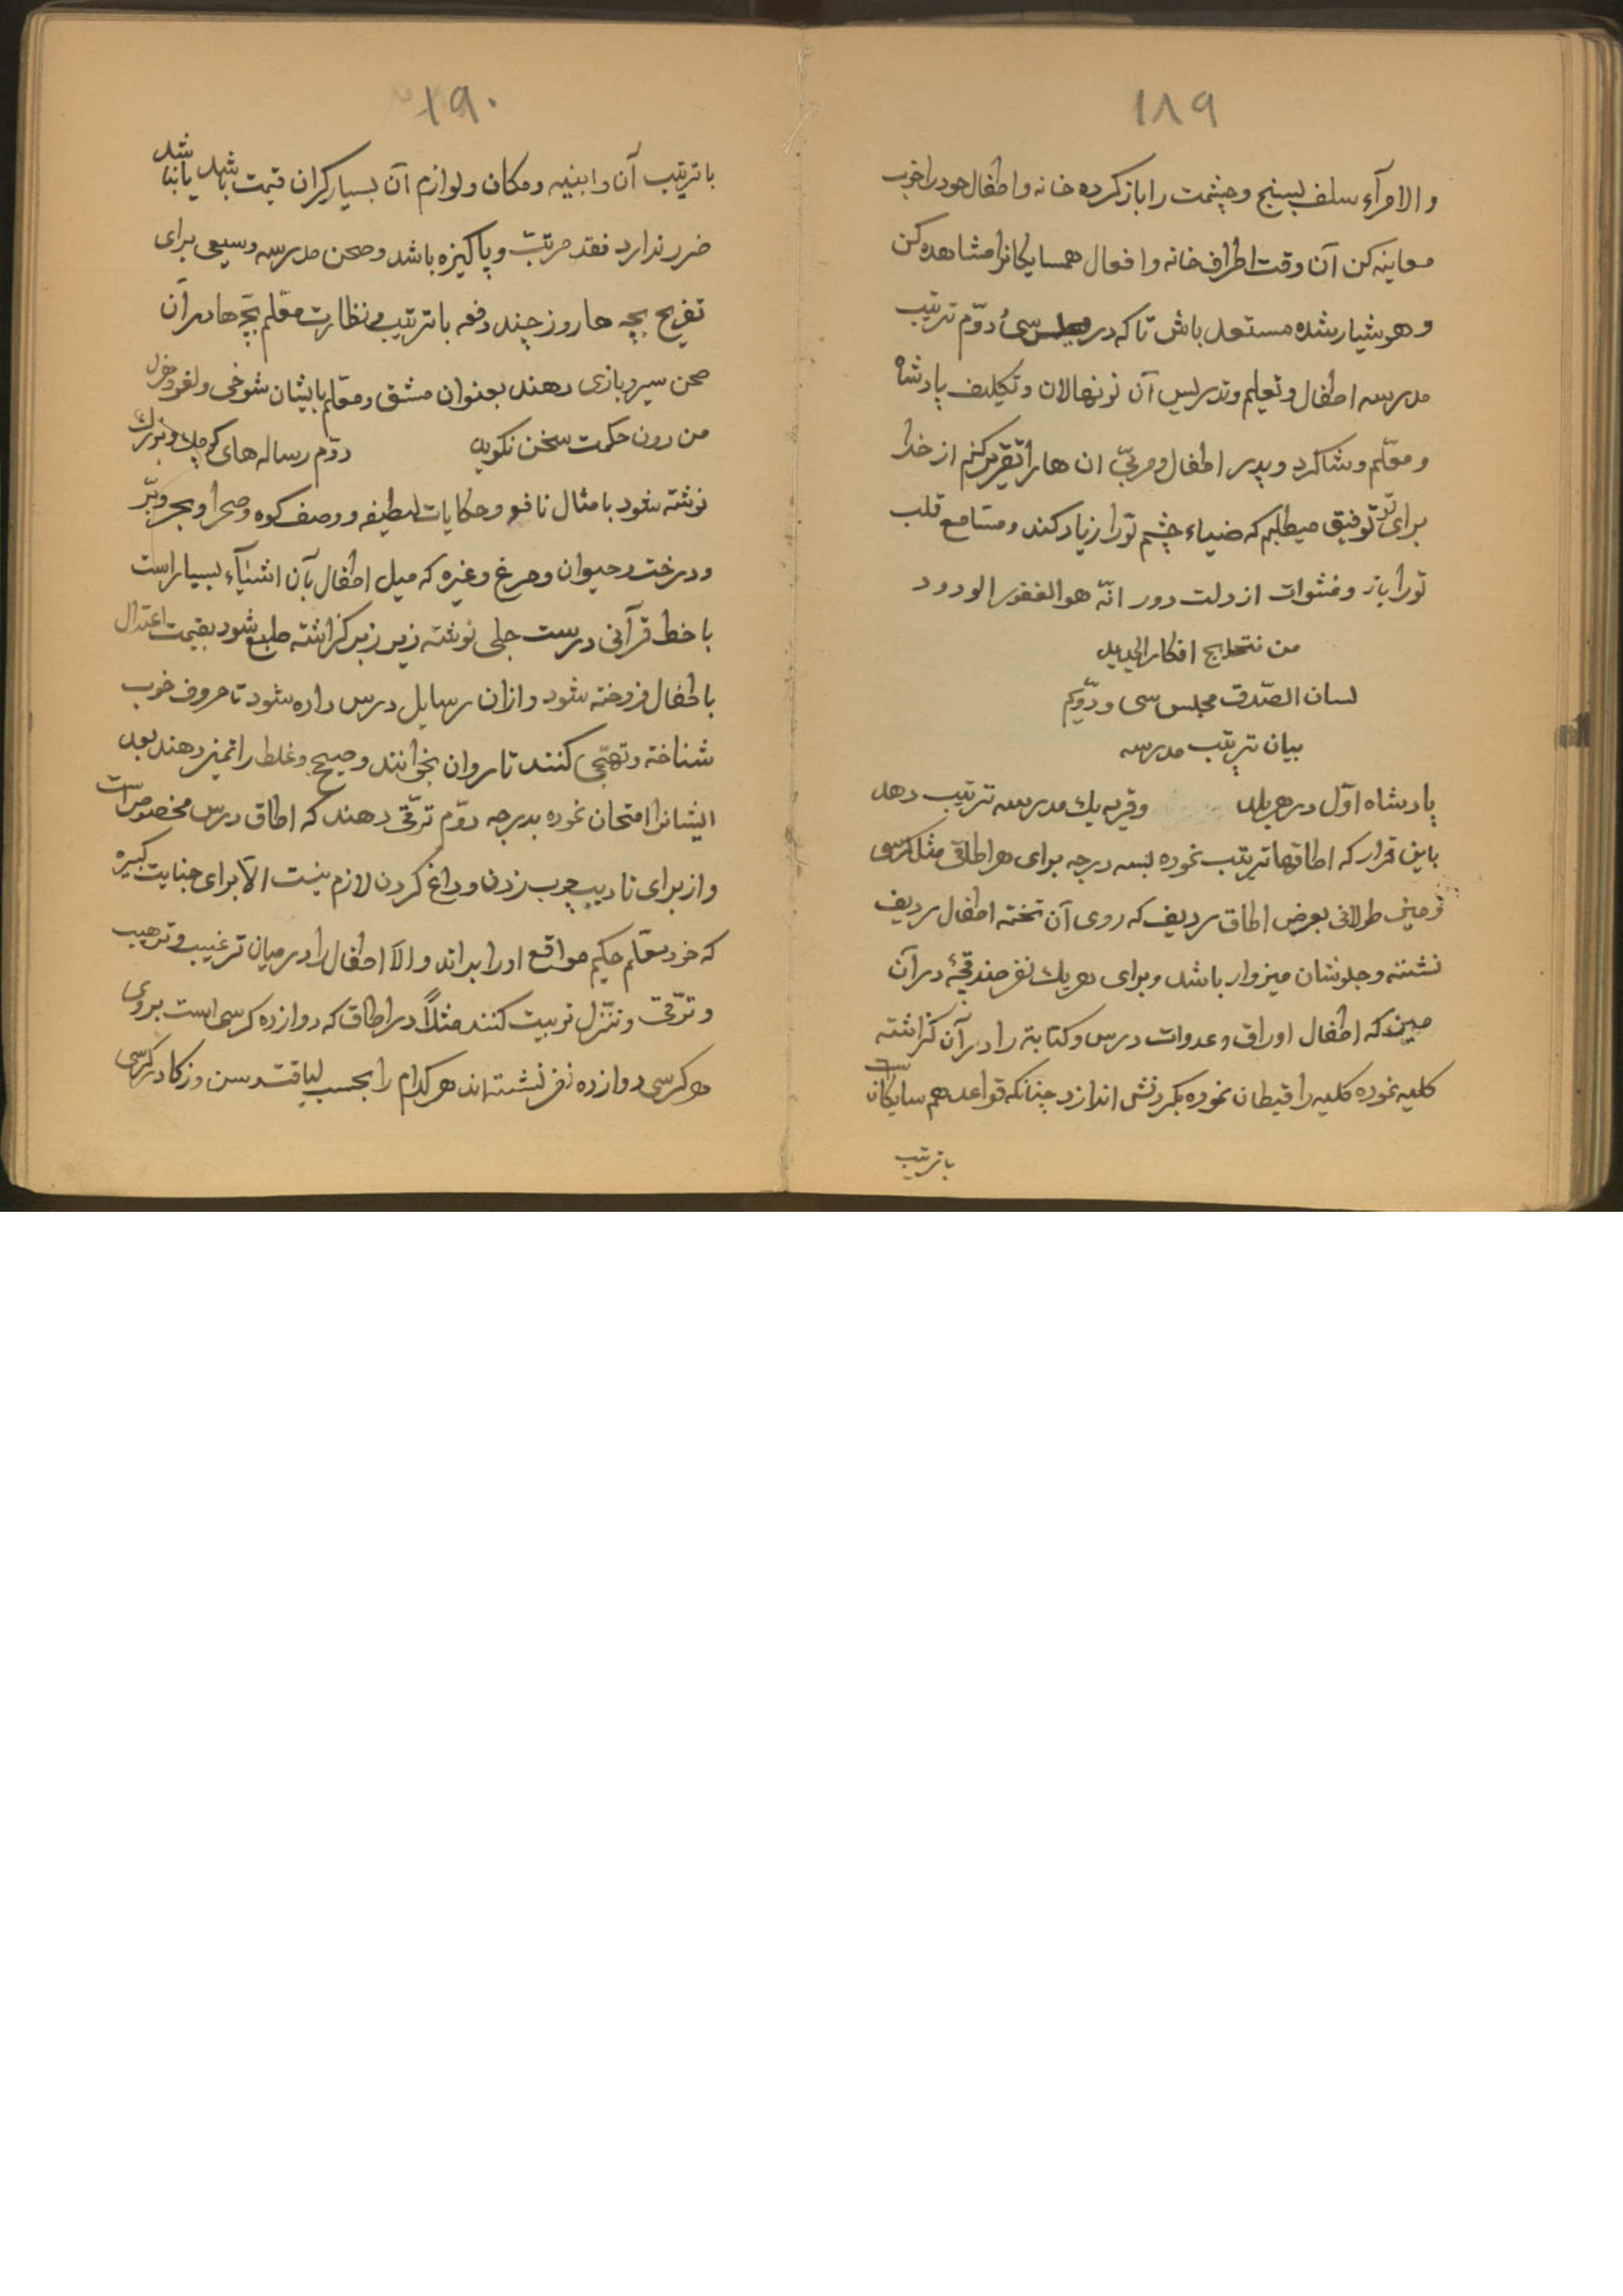 ۱۸۹
والا مرآء سلف بسنج و چشمت را باز کرده خانه و اطفال خود را خوب
معاینه کن آن وقت اطراف خانه و افعال همسایکانرا مشاهده کن
و هوشیار شده مستعد باش تا که در مجلس سی دوّم ترتیب
مدرسه اطفال و تعلیم و تدریس آن نونهالان و تکلیف پادشاه
و معلّم و شاکرد و پدر اطفال و مربّی ان ها را تقریر کنم از خدا
برای تو توفیق میطلبم که ضیاء چشم تو را زیاد کند و مسامع قلب
تو را باز و غشوات از دلت دور انّه هو الغفور الودود
من نتایج افکار الجدید
لسان الصّدق مجلس سی و دوّیم
بیان ترتیب مدرسه
پادشاه اوّل در هر بلد و قریه یك مدرسه ترتیب دهد
باین قرار که اطاقها ترتیب نموده بسه درجه برای هر اطاقی مثل کرسی
زمینی طولانی بعرض اطاق ردیف که روی آن تخته اطفال ردیف
نشسته و جلوشان میزوار باشد و برای هر یك نفر صندقچۀ در آن
میز که اطفال اوراق و عدوات درس و کتابة را در آن کزاشته
کلید نموده کلید را قیطان نموده بکردنش اندازد چنانکه قواعد همسایکانست
با ترتیب
۱۹۰
با ترتیب آن و ابنیه و مکان و لوازم آن بسیار کران قیمت باشد یا نباشد
ضرر ندارد فقد مرتبّ و پاکیزه باشد و صحن مدرسه وسیعی برای
تفریح بچه ها روز چند دفعه با ترتیب و نظارت معلّم بچّها در آن
صحن سیر و بازی دهند بعنوان مشق و معلّم بایشان شوخی و لغو و هزل
من دون حکمت سخن نکوید دوّم رساله های کوچك و بزرك
نوشته شود با مثال نافع و حکایات لطیفه و وصف کوه و صحرا و بحر و برّ
و درخت و حیوان و مرغ و غیره که میل اطفال بآن اشیآء بسیار است
با خط قرآنی درست جلی نوشته زیر زبر کزاشته طبع شود بقیمت اعتدال
باطفال فروخته شود و ازان رسایل درس داده شود تا حروف خوب
شناخته و تهجّی کنند تا روان بخوانند و صحیح و غلط را تمیز دهند بعد
ایشانرا امتحان نموده بدرجه دوّم ترقّی دهند که اطاق درس مخصوص است
و از برای تادیب چوب زدن و داغ کردن لازم نیست الّا برای جنایت کبیره
که خود معلّم حکیم مواقع او را بداند و الّا اطفال را در میان ترغیب و ترهیب
و ترقّی و تنزّل تربیت کنند مثلاً در اطاق که دوازده کرسی است بروی
هر کرسی دوازده نفر نشسته اند هر کدام را بحسب لیاقت و سن و زکا در کرسی